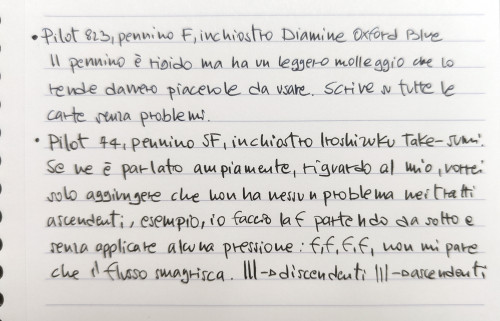 • Pilot 823, pennino F, inchiostro Diamine Oxford Blue
Il pennino è rigido ma ha un leggero molleggio che lo
rende davvero piacevole da usare. Scrive su tutte le
carte senza problemi.
• Pilot 74, pennino SF, inchiostro Iroshizuku Take-sumi.
Se ne è parlato ampiamente, riguardo al mio, vorrei
solo aggiungere che non ha nessun problema nei tratti
ascendenti, esempio, io faccio la f partendo da sotto e
senza applicare alcuna pressione: f, f, f, f, non mi pare
che il flusso smagrisca. |||→discendenti |||→ascendenti